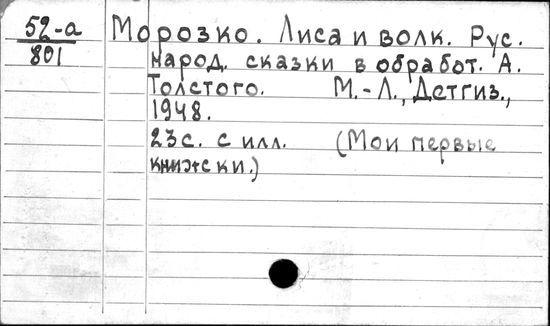 52-а Морозко. Лиса и волк. Рус.
801 народ. сказки в обработ. А.
Толстого. М.-Л., Детгиз.,
1948.
23с. с илл. (Мои первые
книжки.)